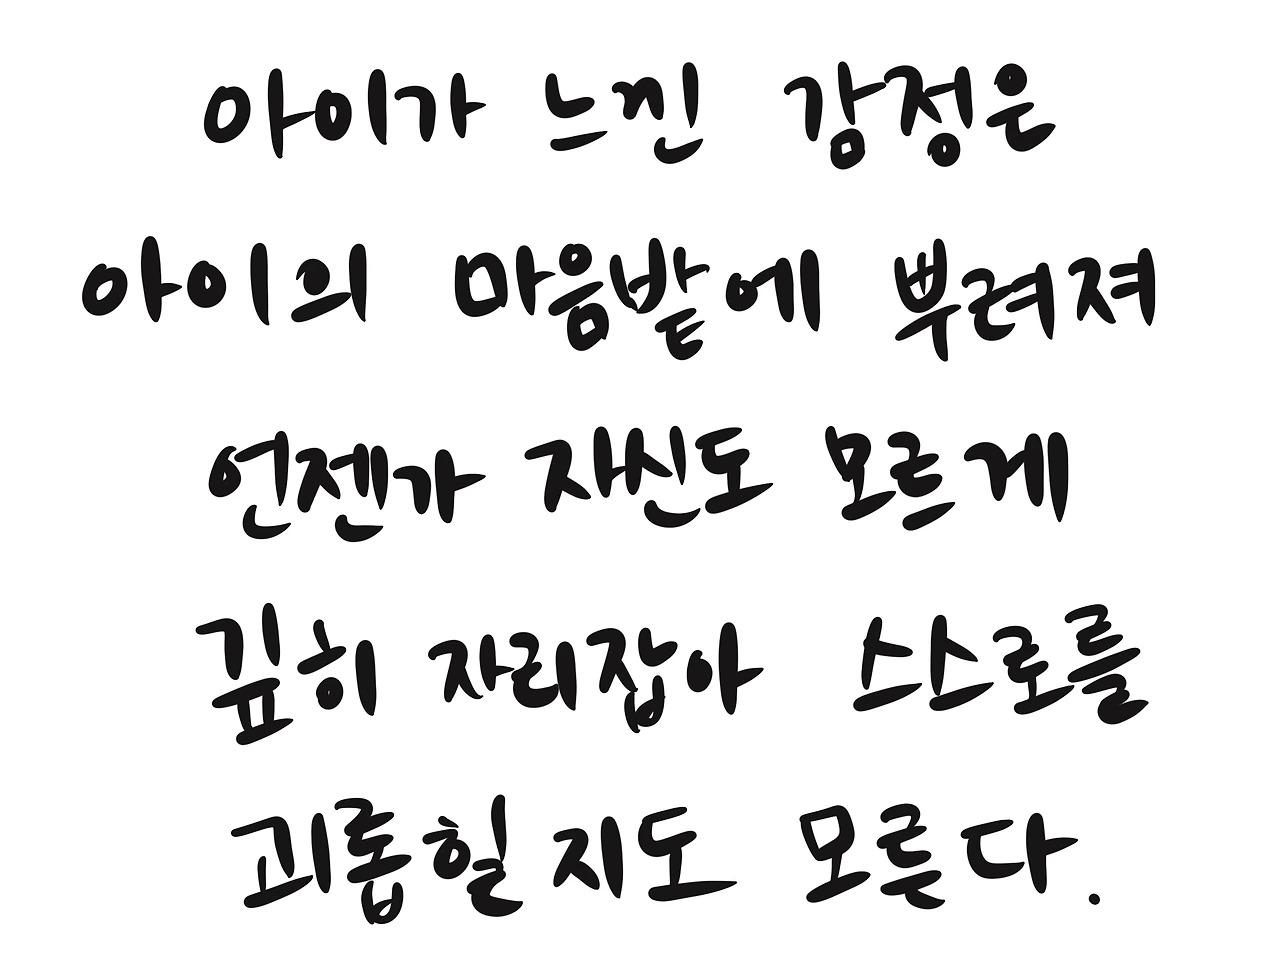 아이가 느낀 감정은
아이의 마음밭에 뿌려져
언젠가 자신도 모르게
깊히 자리잡아 스스로를
괴롭힐지도 모른다.